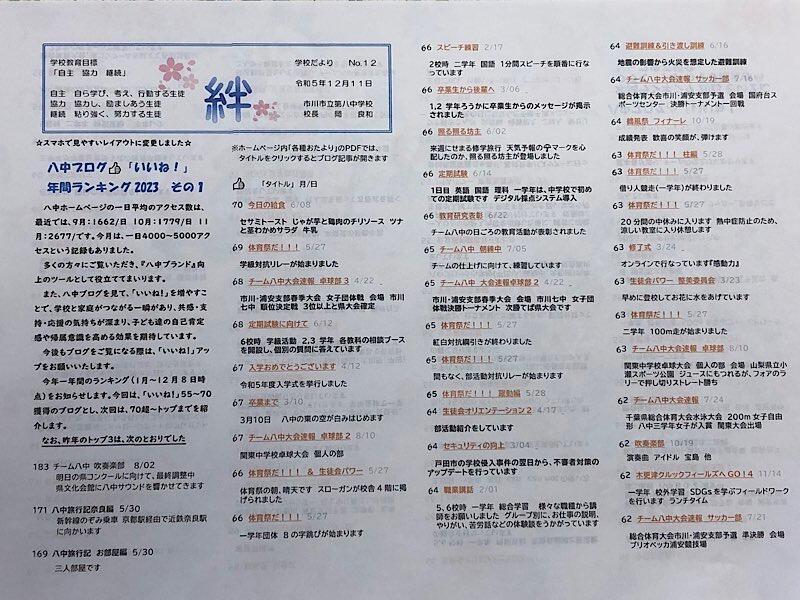 学校教育目標
「自主 協力 継続」
自主 自ら学び、考え、行動する生徒
協力 協力し、励ましあう生徒
継続 粘り強く、努力する生徒
絆
学校だより No.12
令和5年12月11日
市川市立第八中学校
校長 岡 良和
☆スマホで見やすいレイアウトに変更しました☆
八中ブログ👍「いいね！」
年間ランキング2023 その1
八中ホームページの一日平均のアクセス数は、
最近では、9月:1662/日 10月:1779/日 11
月:2677/です。今月は、一日4000～5000アク
セスという記録もありました。
多くの方々にご覧いただき、『八中ブランド』向
上のツールとして役立ててまいります。
また、八中ブログを見て、「いいね！」を増やすこ
とで、学校と家庭がつながる一瞬があり、共感・支
持・応援の気持ちが深まり、子ども達の自己肯定
感や帰属意識を高める効果を期待しています。
今後もブログをご覧になる際は、「いいね！」アッ
プをお願いいたします。
今年一年間のランキング(1月～12月8日時
点)をお知らせします。今回は、「いいね！」55～70
獲得のブログとし、次回は、70超～トップまでを紹
介します。
なお、昨年のトップ3は、次のとおりでした
183 チーム八中 吹奏楽部 8/02
明日の県コンクールに向けて、最終調整中
県文化会館に八中サウンドを響かせてきます
171 八中旅行記奈良編 5/30
新幹線のぞみ乗車 京都駅経由で近鉄奈良駅
に向かいます
169 八中旅行記 お部屋編 5/30
三人部屋です
※ホームページ内「各種おたより」のPDFでは、
タイトルをクリックするとブログ記事が開きます
👍 「タイトル」 月/日
70 今日の給食 6/08
セサミトースト じゃが芋と鶏肉のチリソース ツナ
と茎わかめサラダ 牛乳
69 体育祭だ!!! 5/27
学級対抗リレーが始まりました
68 チーム八中大会速報 卓球部3 4/22
市川・浦安支部春季大会 女子団体戦 会場 市川
七中 順位決定戦 3位以上と県大会確定
68 定期試験に向けて 6/12
6校時 学級活動 2,3学年 各教科の相談ブース
を開設し、個別の質問に答えています
67 入学おめでとうございます 4/12
令和5年度入学式を挙行しました
67 卒業まで 3/10
3月10日 八中の東の空が白みはじめます
67 チーム八中大会速報 卓球部2 8/10
関東中学校卓球大会 個人の部
66 体育祭だ!!! & 生徒会パワー 5/27
体育祭の朝、晴天です スローガンが校舎4階に掲
げられました
66 体育祭だ!!! 5/27
一学年団体 8の字跳びが始まります
66 スピーチ練習 2/17
2校時 二学年 国語 1分間スピーチを順番に行な
っています
66 卒業生から後輩へ 3/06
1,2学年ろうかに卒業生からのメッセージが掲示
されました
66 照る照る坊主 6/02
来週にせまる修学旅行 天気予報の☂マークを心
配したのか、照る照る坊主が登場しました
66 定期試験 6/14
1日目 英語 国語 理科 一学年は、中学校で初め
ての定期試験です デジタル採点システム導入
66 教育研究表彰 6/22
チーム八中の日ごろの教育活動が表彰されました
65 チーム八中 朝練中 7/05
チームの仕上げに向けて、練習しています
65 チーム八中大会速報卓球部2 4/22
市川・浦安支部春季大会 会場 市川七中 女子団
体戦決勝トーナメント 次勝てば県大会です
65 体育祭だ!!! 5/27
紅白対抗綱引きが終わりました
65 体育祭だ!!! 5/27
間もなく、部活動対抗リレーが始まります
65 体育祭だ!!! 躍動編 5/28
64 生徒会オリエンテーション2 4/17
部活動紹介をしています
64 セキュリティの向上 3/04
戸田市の学校侵入事件の翌日から、不審者対策の
アップデートを行っています
64 職業講話 2/01
5,6校時 一学年 総合学習 様々な職種から講
師をお願いしました グループ別に、お仕事の説明、
やりがい、苦労話などの体験談をうかがっています
64 避難訓練&引き渡し訓練 6/16
地震の影響から火災を想定した避難訓練
64 チーム八中大会速報 サッカー部 7/16
総合体育大会市川・浦安支部予選 会場 国府台ス
ポーツセンター 決勝トーナメント一回戦
64 鶴風祭 フィナーレ 10/19
成績発表 歓喜の笑顔が、弾けます
63 体育祭だ!!! 柱編 5/28
63 体育祭だ!!! 5/27
借り人競走(一学年)が終わりました
63 体育祭だ!!! 5/27
20分間の中休みに入ります 熱中症防止のため、
涼しい教室に入り休憩します
63 修了式 3/24
オンラインで行なっています『感動力』
63 生徒会パワー 整美委員会 3/23
早めに登校してお花に水をあげています
63 体育祭だ!!! 5/27
二学年 100m走が始まりました
63 チーム八中大会速報 卓球部 8/10
関東中学校卓球大会 個人の部 会場 山梨県立小
瀬スポーツ公園 ジュースにもつれるが、フォアのラ
リーで押し切りストレート勝ち
62 チーム八中大会速報 7/24
千葉県総合体育大会水泳大会 200m女子自由
形 八中三学年女子が入賞 関東大会出場
62 吹奏楽部 10/19
演奏曲 アイドル 宝島 他
62 木更津クルックフィールズへGO!4 11/14
一学年 校外学習 SDGsを学ぶフィールドワーク
を行います ランチタイム
62 チーム八中大会速報 サッカー部 7/21
総合体育大会市川・浦安支部予選 準決勝 会場
ブリオベッカ浦安競技場